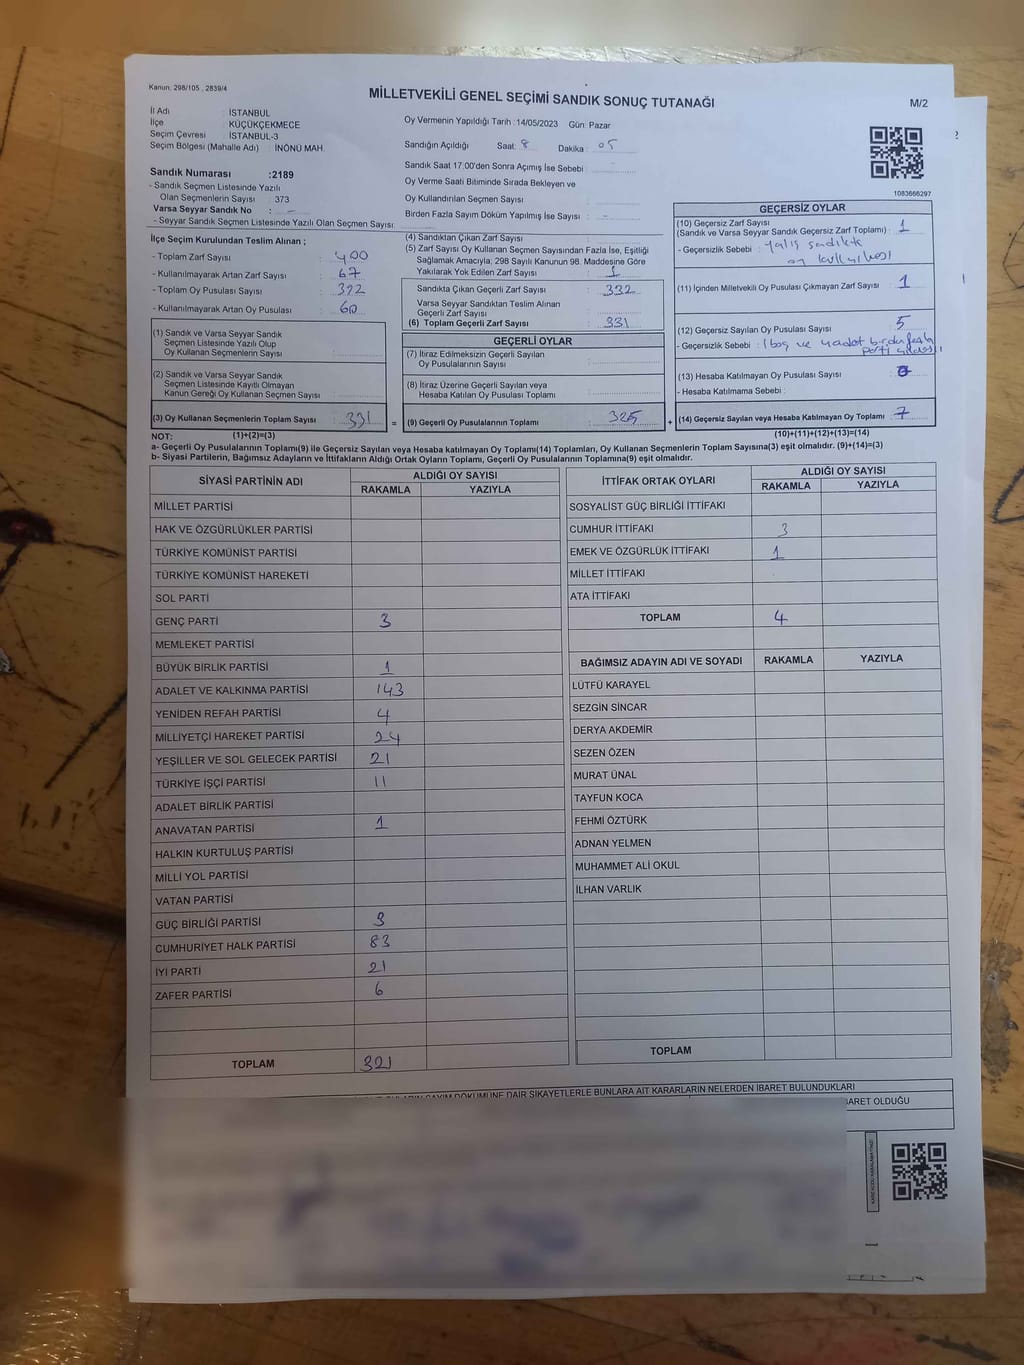 Kanun: 298/105 , 2839/4
MİLLETVEKİLİ GENEL SEÇİMİ SANDIK SONUÇ TUTANAĞI
M/2
İl Adı : İSTANBUL
İlçe : KÜÇÜKÇEKMECE
Seçim Çevresi : İSTANBUL-3
Seçim Bölgesi (Mahalle Adı) : İNÖNÜ MAH.
Oy Vermenin Yapıldığı Tarih :14/05/2023 Gün: Pazar
Sandığın Açıldığı Saat: 8 Dakika : 05
Sandık Saat 17.00'den Sonra Açımış İse Sebebi :
Oy Verme Saati Bitiminde Sırada Bekleyen ve
Oy Kullandırılan Seçmen Sayısı :
Birden Fazla Sayım Döküm Yapılmış İse Sayısı : -
1083666297
Sandık Numarası :2189
- Sandık Seçmen Listesinde Yazılı
Olan Seçmenlerin Sayısı : 373
Varsa Seyyar Sandık No : -
- Seyyar Sandık Seçmen Listesinde Yazılı Olan Seçmen Sayısı:
İlçe Seçim Kurulundan Teslim Alınan ;
- Toplam Zarf Sayısı : 400
- Kullanılmayarak Artan Zarf Sayısı : 67
- Toplam Oy Pusulası Sayısı : 392
- Kullanılmayarak Artan Oy Pusulası : 60
(1) Sandık ve Varsa Seyyar Sandık
Seçmen Listesinde Yazılı Olup
Oy Kullanan Seçmenlerin Sayısı :
(2) Sandık ve Varsa Seyyar Sandık
Seçmen Listesinde Kayıtlı Olmayan
Kanun Gereği Oy Kullanan Seçmen Sayısı :
(3) Oy Kullanan Seçmenlerin Toplam Sayısı : 331
(4) Sandıktan Çıkan Zarf Sayısı :
(5) Zarf Sayısı Oy Kullanan Seçmen Sayısından Fazla İse, Eşitliği
Sağlamak Amacıyla; 298 Sayılı Kanunun 98. Maddesine Göre
Yakılarak Yok Edilen Zarf Sayısı : 1
Sandıkta Çıkan Geçerli Zarf Sayısı : 332
Varsa Seyyar Sandıktan Teslim Alınan
Geçerli Zarf Sayısı :
(6) Toplam Geçerli Zarf Sayısı : 331
GEÇERLİ OYLAR
(7) İtiraz Edilmeksizin Geçerli Sayılan
Oy Pusulalarının Sayısı :
(8) İtiraz Üzerine Geçerli Sayılan veya
Hesaba Katılan Oy Pusulası Toplamı :
= (9) Geçerli Oy Pusulalarının Toplamı : 325
GEÇERSİZ OYLAR
(10) Geçersiz Zarf Sayısı
(Sandık ve Varsa Seyyar Sandık Geçersiz Zarf Toplamı) : 1
- Geçersizlik Sebebi : yalış sadıkta
oy kullılması
(11) İçinden Milletvekili Oy Pusulası Çıkmayan Zarf Sayısı : 1
(12) Geçersiz Sayılan Oy Pusulası Sayısı : 5
- Geçersizlik Sebebi : 1 boş ve 4 adet birden fazla
parti
(13) Hesaba Katılmayan Oy Pusulası Sayısı :
- Hesaba Katılmama Sebebi :
+ (14) Geçersiz Sayılan veya Hesaba Katılmayan Oy Toplamı : 7
NOT: (1)+(2)=(3)
(10)+(11)+(12)+(13)=(14)
a- Geçerli Oy Pusulalarının Toplamı(9) ile Geçersiz Sayılan veya Hesaba Katılmayan Oy Toplamı(14) Toplamları, Oy Kullanan Seçmenlerin Toplam Sayısına(3) eşit olmalıdır. (9)+(14)=(3)
b- Siyasi Partilerin, Bağımsız Adayların ve İttifakların Aldığı Ortak Oyların Toplamı, Geçerli Oy Pusulalarının Toplamına(9) eşit olmalıdır.
SİYASİ PARTİNİN ADI
ALDIĞI OY SAYISI
RAKAMLA YAZIYLA
MİLLET PARTİSİ
HAK VE ÖZGÜRLÜKLER PARTİSİ
TÜRKİYE KOMÜNİST PARTİSİ
TÜRKİYE KOMÜNİST HAREKETİ
SOL PARTİ
GENÇ PARTİ 3
MEMLEKET PARTİSİ
BÜYÜK BİRLİK PARTİSİ 1
ADALET VE KALKINMA PARTİSİ 143
YENİDEN REFAH PARTİSİ 4
MİLLİYETÇİ HAREKET PARTİSİ 24
YEŞİLLER VE SOL GELECEK PARTİSİ 21
TÜRKİYE İŞÇİ PARTİSİ 11
ADALET BİRLİK PARTİSİ
ANAVATAN PARTİSİ 1
HALKIN KURTULUŞ PARTİSİ
MİLLİ YOL PARTİSİ
VATAN PARTİSİ
GÜÇ BİRLİĞİ PARTİSİ 3
CUMHURİYET HALK PARTİSİ 83
İYİ PARTİ 21
ZAFER PARTİSİ 6
TOPLAM 321
İTTİFAK ORTAK OYLARI
ALDIĞI OY SAYISI
RAKAMLA YAZIYLA
SOSYALİST GÜÇ BİRLİĞİ İTTİFAKI
CUMHUR İTTİFAKI 3
EMEK VE ÖZGÜRLÜK İTTİFAKI 1
MİLLET İTTİFAKI
ATA İTTİFAKI
TOPLAM 4
BAĞIMSIZ ADAYIN ADI VE SOYADI RAKAMLA YAZIYLA
LÜTFÜ KARAYEL
SEZGİN SİNCAR
DERYA AKDEMİR
SEZEN ÖZEN
MURAT ÜNAL
TAYFUN KOCA
FEHMİ ÖZTÜRK
ADNAN YELMEN
MUHAMMET ALİ OKUL
İLHAN VARLIK
TOPLAM
DÖKÜMÜNE DAİR ŞİKAYETLERLE BUNLARA AİT KARARLARIN NELERDEN İBARET BULUNDUKLARI
İBARET OLDUĞU